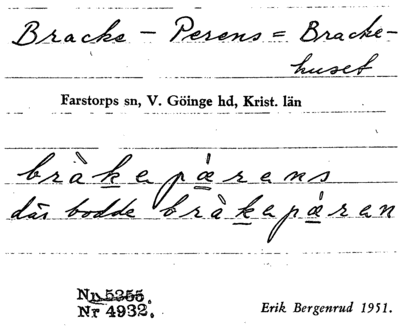 Bracke - Perens = Bracke-
huset
Farstorps sn, V. Göinge hd, Krist. län
bràkapæ̀rens
där bodde bràkapæ̀ren
Nr 5355.
Nr 4932.
Erik Bergenrud 1951.